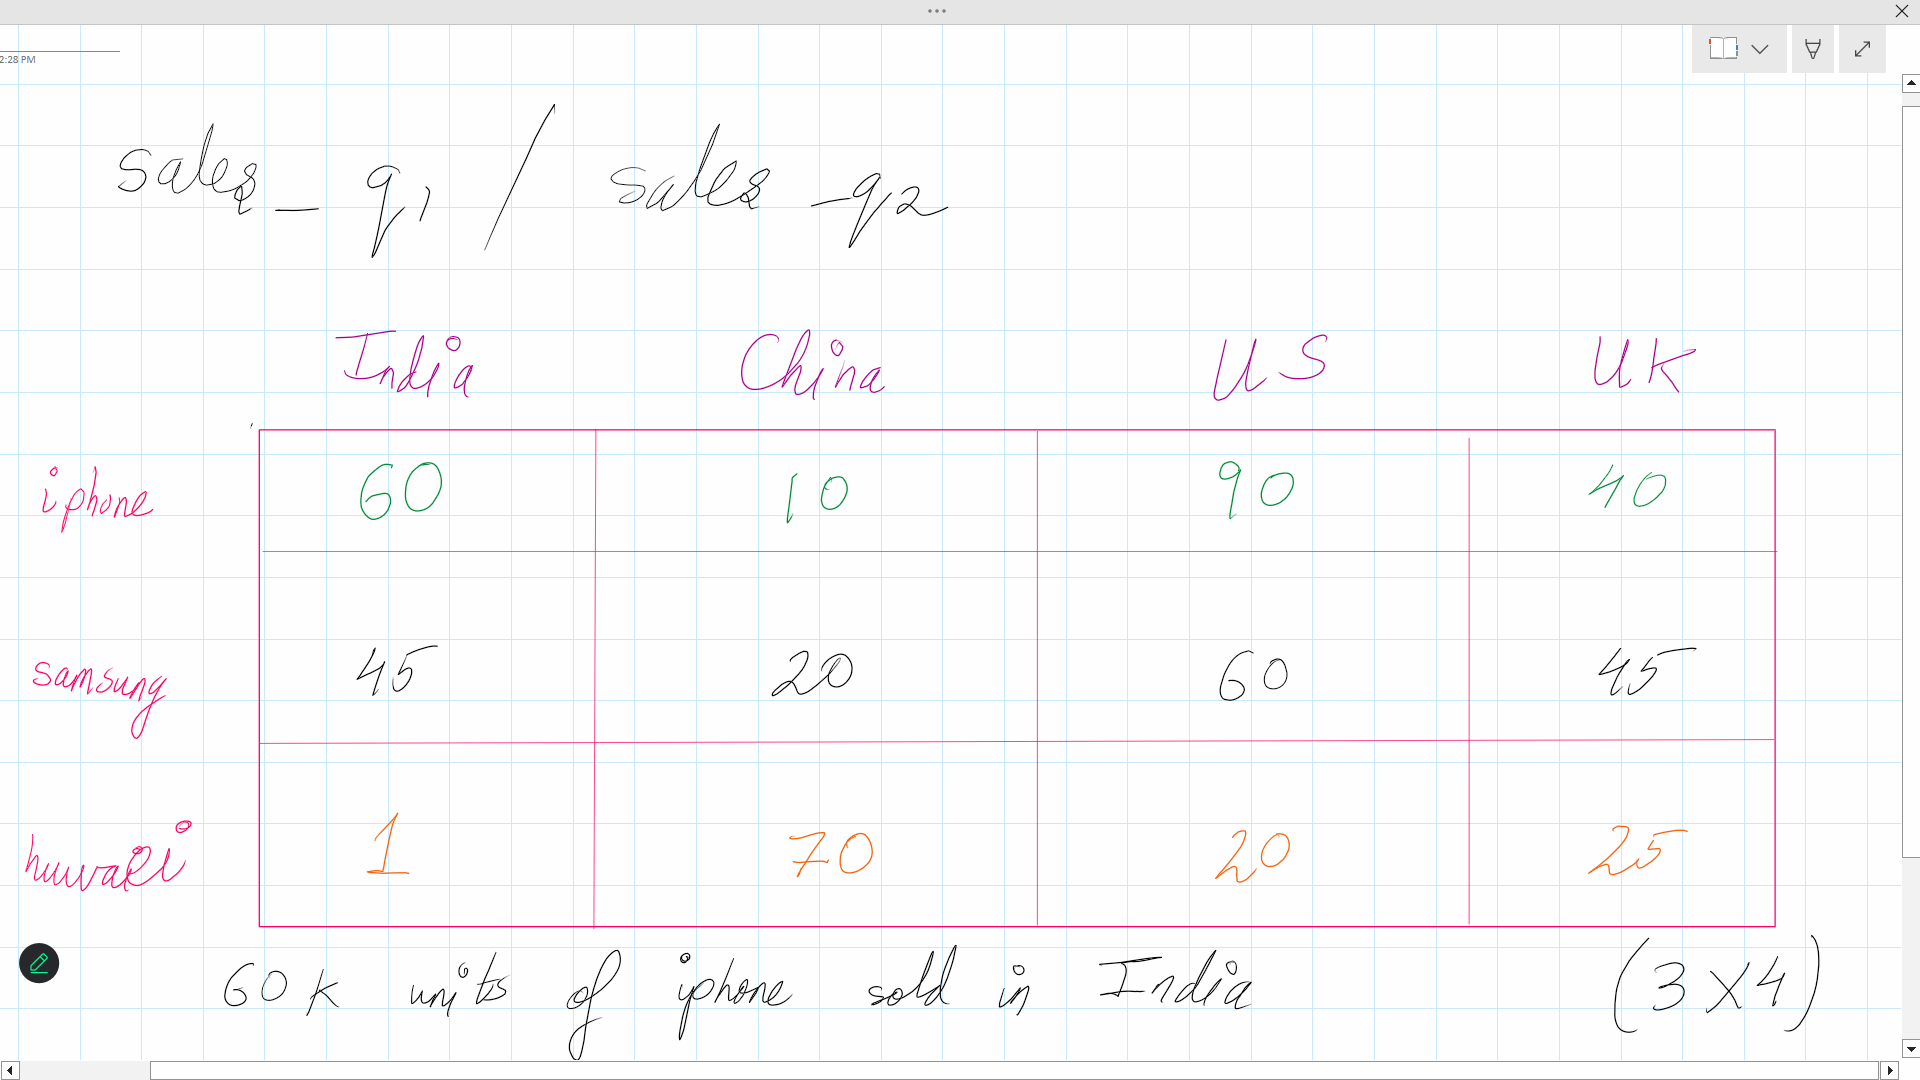 2:28 PM
sales_q1 / sales_q2
India China US UK
iphone 60 10 90 40
samsung 45 20 60 45
1 70 20 25
60k units of iphone sold in India (3X4)